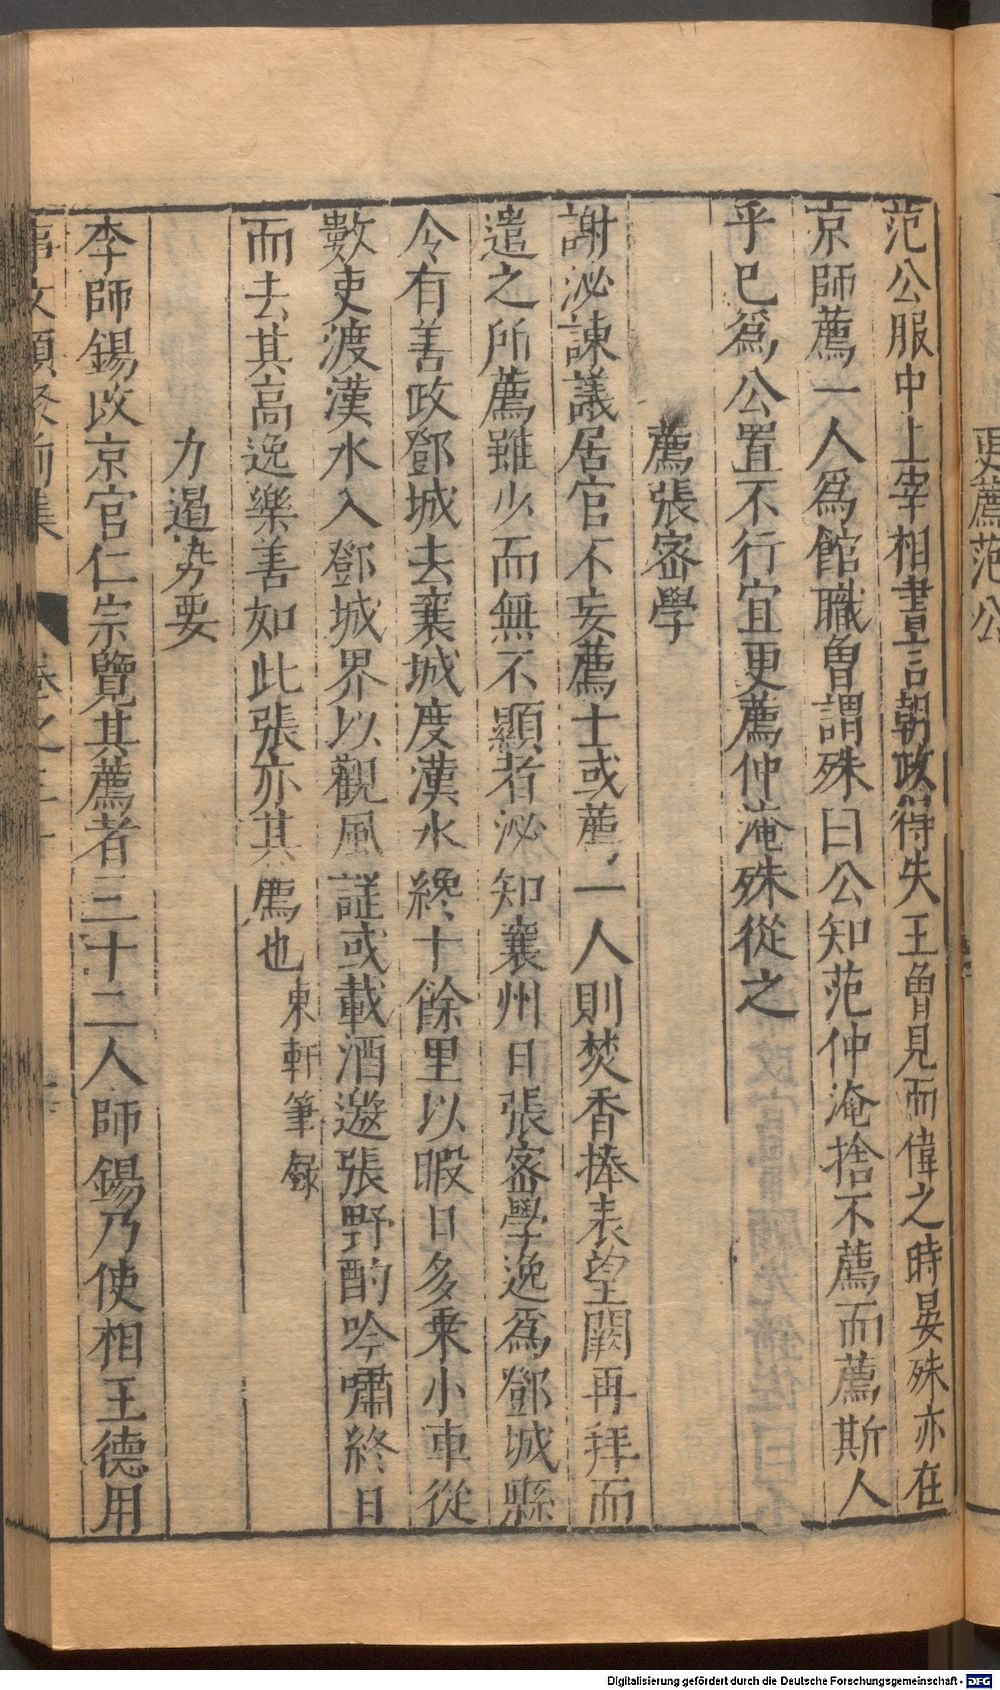 更薦范公
范公服中上宰相書言朝政得失王魯見而偉之時晏殊亦在
京師薦一人爲館職魯謂殊曰公知范仲淹捨不薦而薦斯人
乎已爲公置不行宜更薦仲淹殊從之
薦張密學
謝泌諫議居官不妄薦士或薦一人則焚香捧表望闕再拜而
遣之所薦雖少而無不顯者泌知襄州日張密學逸爲鄧城縣
令有善政鄧城去襄城度漢水纔十餘里以暇日多乗小車從
數吏渡漢水入鄧城界以觀風謡或載酒邀張野酌吟嘯終日
而去其高逸樂善如此張亦其薦也東軒筆録
力遏势要
李師錫改京官仁宗覽其薦者三十二人師錫乃使相王德用
事文類聚前集 卷之三十
Digitalisierung gefördert durch die Deutsche Forschungsgemeinschaft - DFG